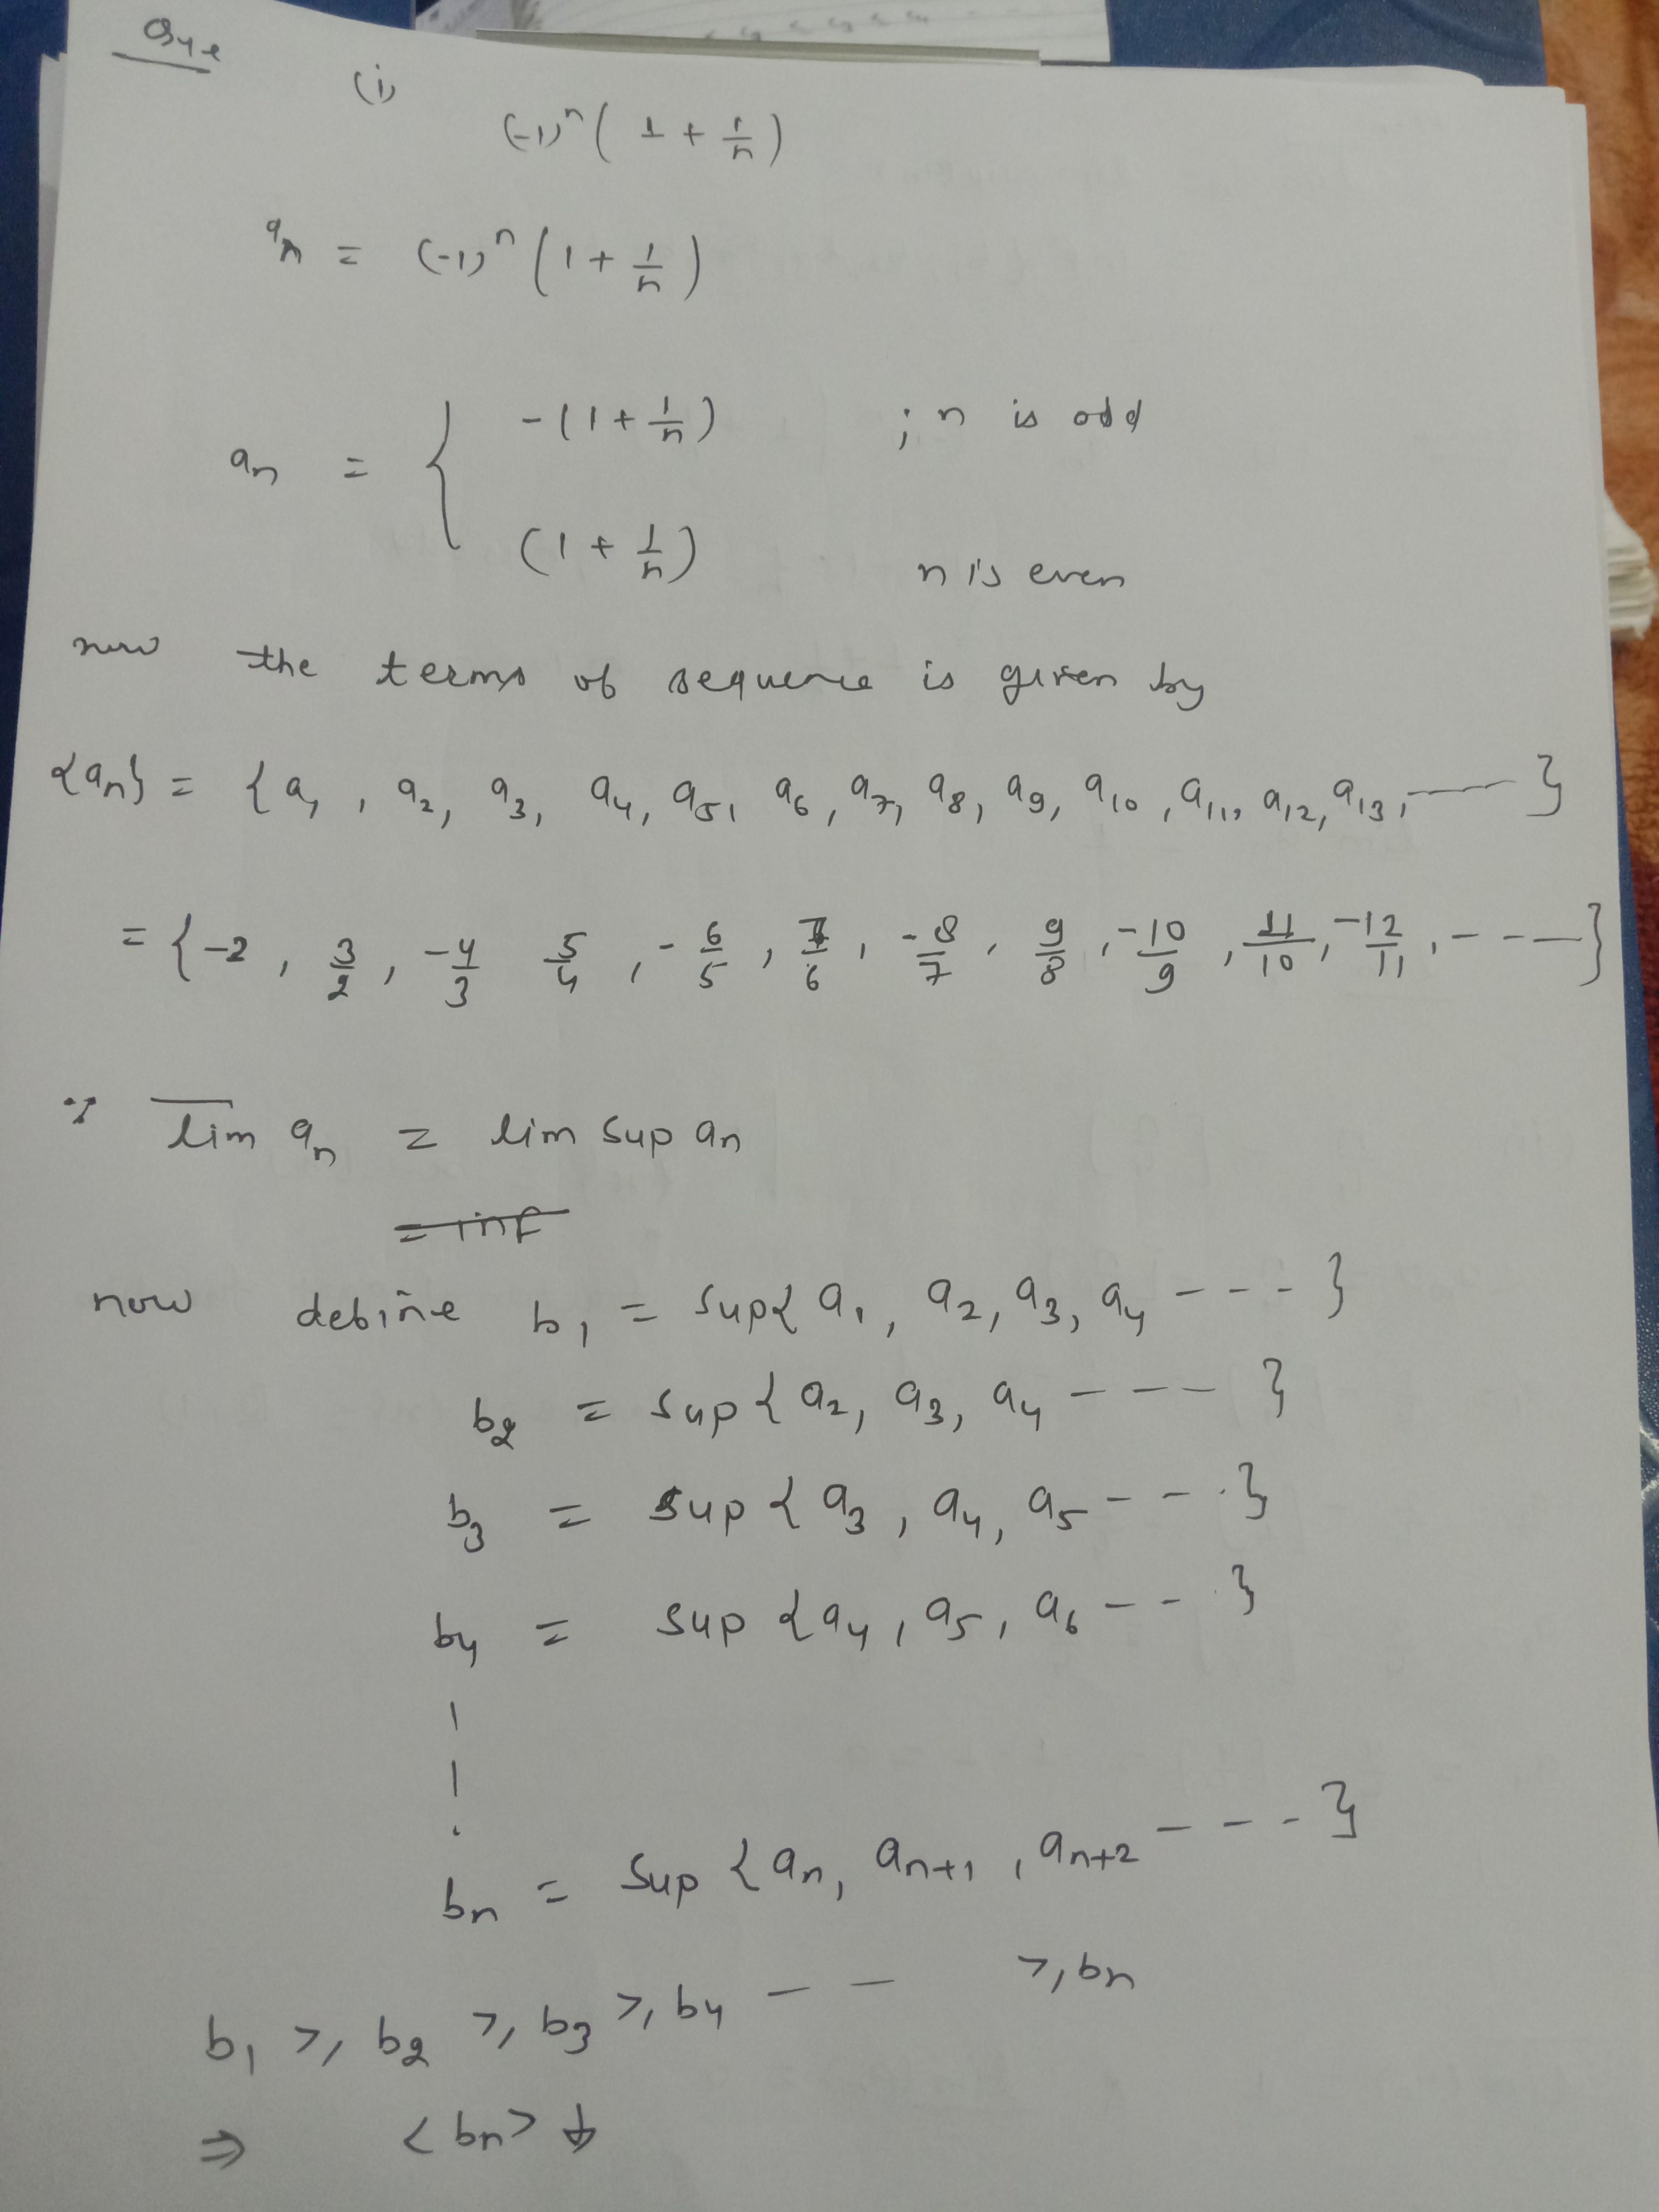 (i)
(-1)ⁿ ( 1 + 1/n )
aₙ = (-1)ⁿ ( 1 + 1/n )
aₙ = { -(1 + 1/n) ; n is odd
(1 + 1/n) n is even
now the terms of sequence is given by
{aₙ} = { a₁ , a₂, a₃, a₄, a₅, a₆, a₇, a₈, a₉, a₁₀, a₁₁, a₁₂, a₁₃, --- }
= { -2 , 3/2 , -4/3 5/4 , -6/5 , 7/6 , -8/7 , 9/8 , -10/9 , 11/10 , -12/11 , --- }
∵ l̅i̅m̅ aₙ = lim sup aₙ
= inf
now define b₁ = sup{ a₁, a₂, a₃, a₄ --- }
b₂ = sup{ a₂, a₃, a₄ --- }
b₃ = sup { a₃, a₄, a₅ --- }
b₄ = sup { a₄, a₅, a₆ --- }
bₙ = sup { aₙ, aₙ₊₁, aₙ₊₂ ---- }
b₁ ≥ b₂ ≥ b₃ ≥ b₄ -- ≥ bₙ
⇒ <bₙ> ↓